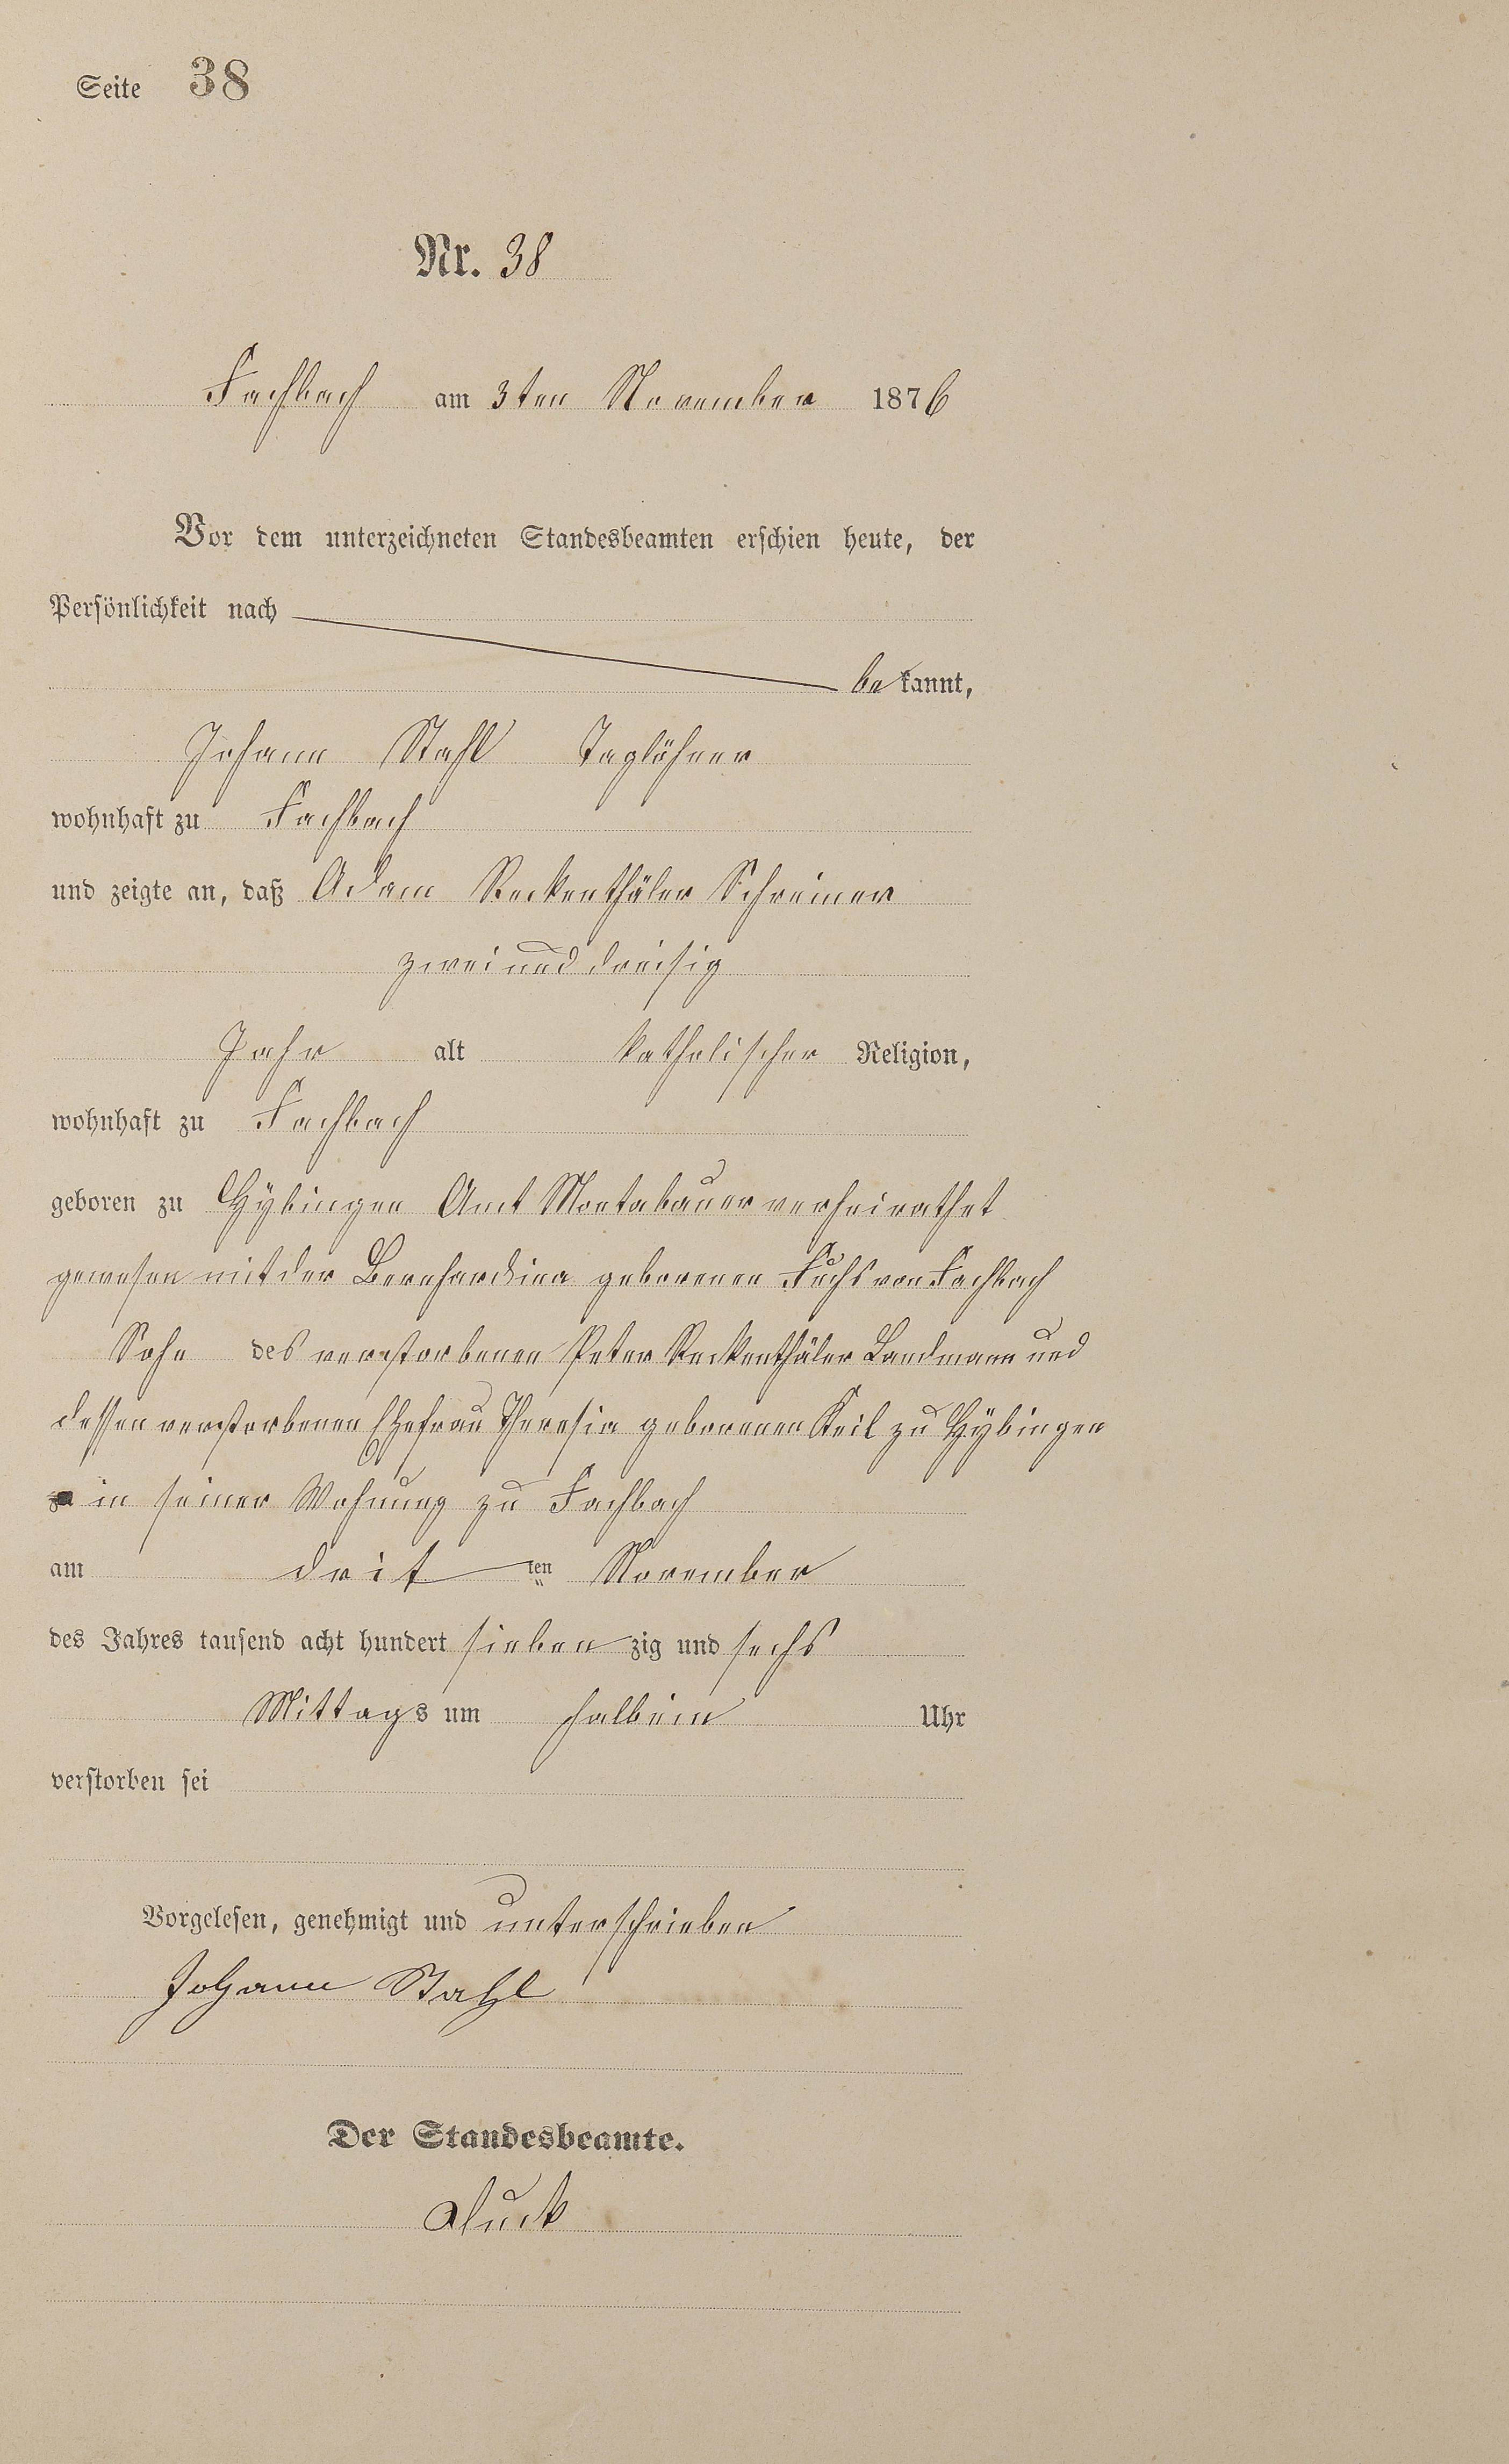 Seite 38
Nr. 38
Fachbach am 3ten November 1876
Vor dem unterzeichneten Standesbeamten erschien heute, der
Persönlichkeit nach
bekannt,
Johann Stahl Taglöhner
wohnhaft zu Fachbach
und zeigte an, daß Adam Reckenthäler Schreiner
zweiund dreisig
Jahr alt katholischer Religion,
wohnhaft zu Fachbach
geboren zu Hÿbingen Amt Montabauer verheirathet
gewesen mit der Bernhardina geborenen Fuchs von Fachbach
Sohn des verstorbenen Peter Reckenthäler Landmann und
dessen verstorbenen Ehefrau Theresia geborenen Keil zu Hÿbingen
in seiner Wohnung zu Fachbach
am dritten November
des Jahres tausend acht hundert siebenzig und sechs
Mittags um halbein Uhr
verstorben sei
Vorgelesen, genehmigt und unterschrieben
Johann Stahl
Der Standesbeamte.